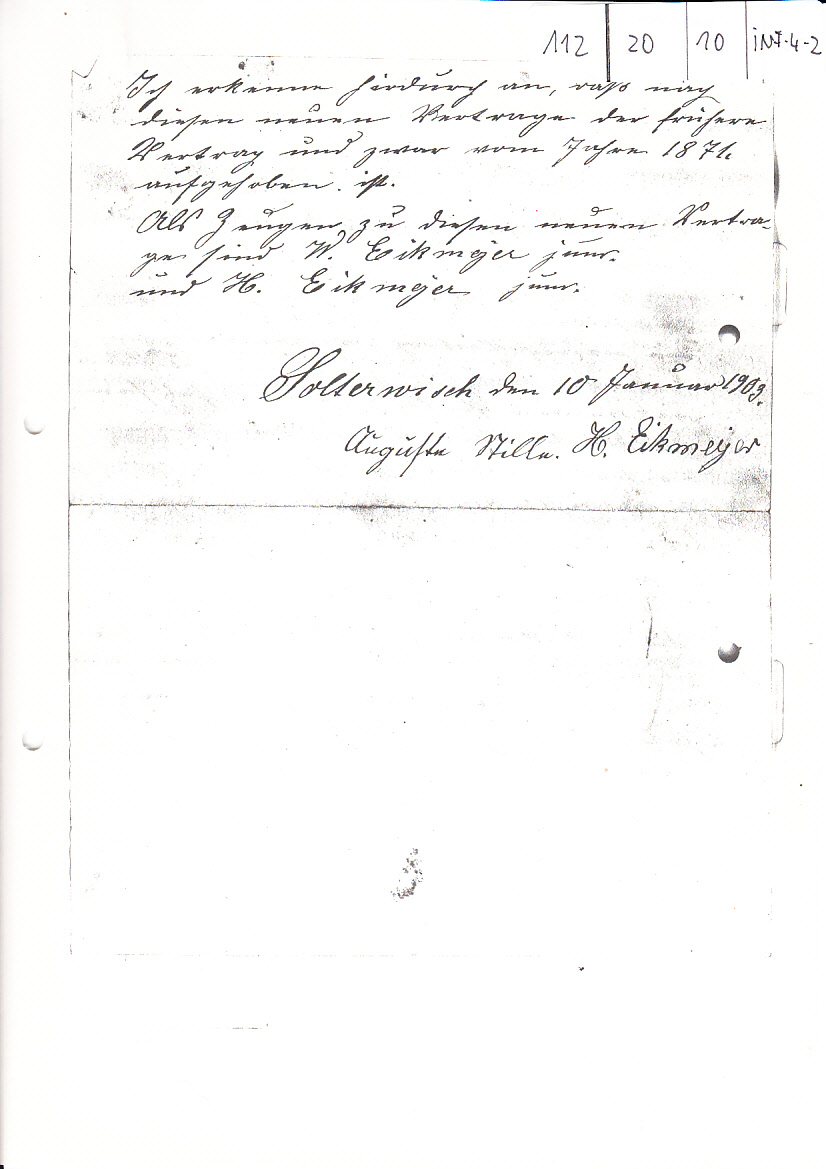 112 20 10 iNT-4-2
Ich erkenne hirdurch an, daß nach
diesen neuen Vertrage der frühere
Vertrag und zwar vom Jahre 1871.
aufgehoben ist.
Als Zeugen zu diesen neuen Vertra-
ge sind W. Eikmeyer junr.
und H. Eikmeyer junr.
Solterwisch den 10 Januar 1903.
Auguste Stille. H. Eikmeyer